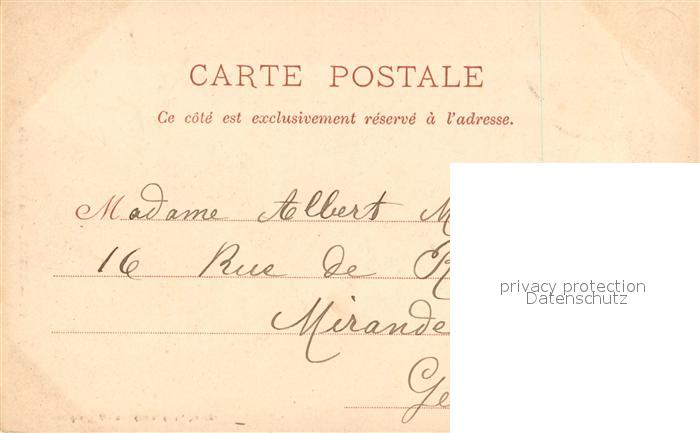 CARTE POSTALE
Ce côté est exclusivement réservé à l'adresse.
Madame Albert M
16 Rue de R
Mirande
Ge
privacy protection
Datenschutz